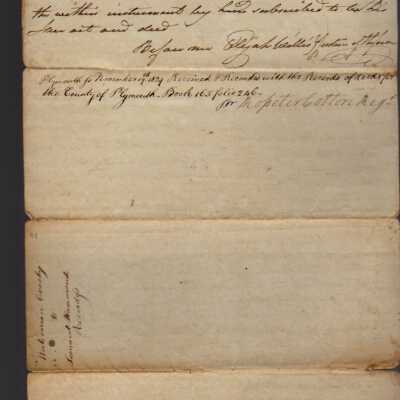 the within instrument by him subscribed to be his
free act and deed
Before me Elijah
Plymouth ss November 1829 Received & Recorded with the Records of Deeds for
the County of Plymouth - Book 165 folio 246.
pr Rossiter Cotton Reg.
Crosby
to
Leonard Hammond